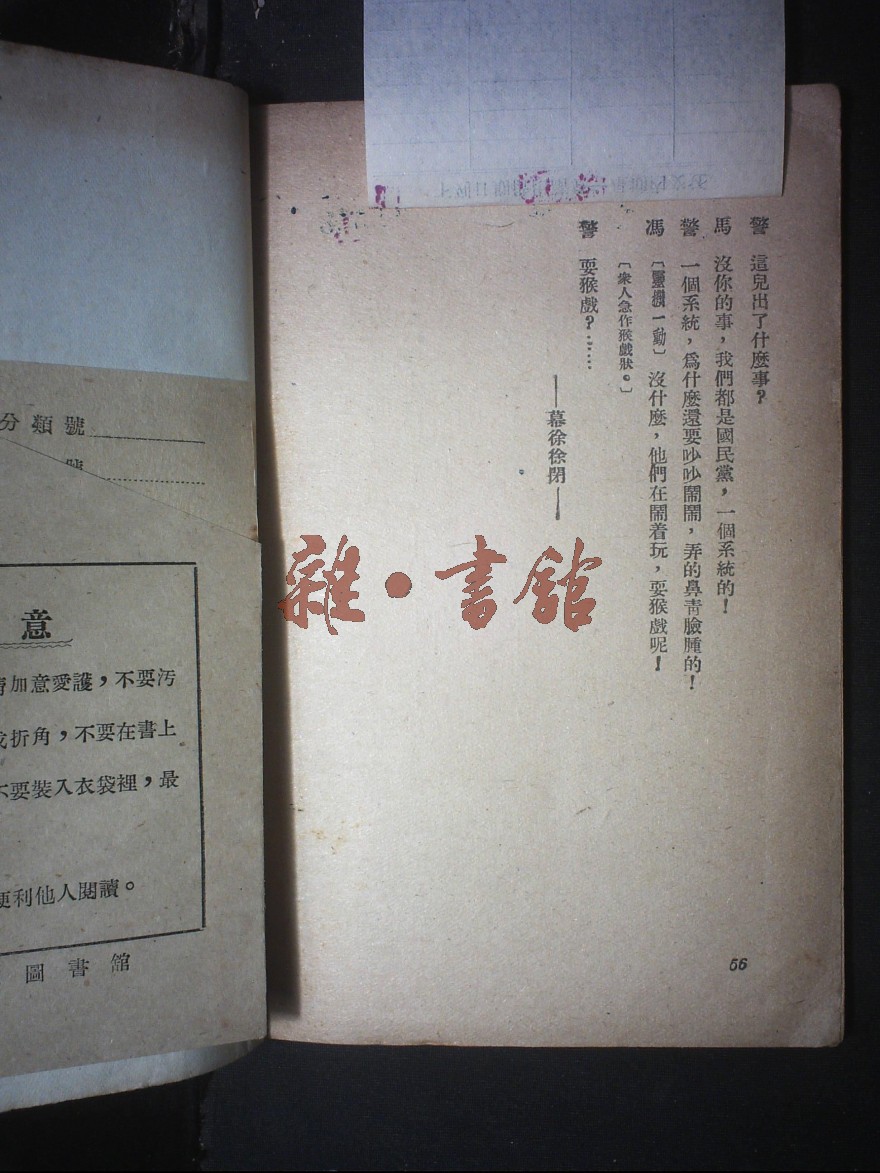 警　這兒出了什麼事？
馬　沒你的事，我們都是國民黨，一個系統的！
警　一個系統，爲什麼還要吵吵鬧鬧，弄的鼻靑臉腫的！
馮　〔靈機一動〕沒什麼，他們在鬧着玩，耍猴戲呢！
〔衆人急作猴戲狀。〕
警　耍猴戲？……
——幕徐徐閉——
56
雜·書館
分類號
號
意
加意愛護，不要汚
折角，不要在書上
不要裝入衣袋裡，最
便利他人閱讀。
圖書館